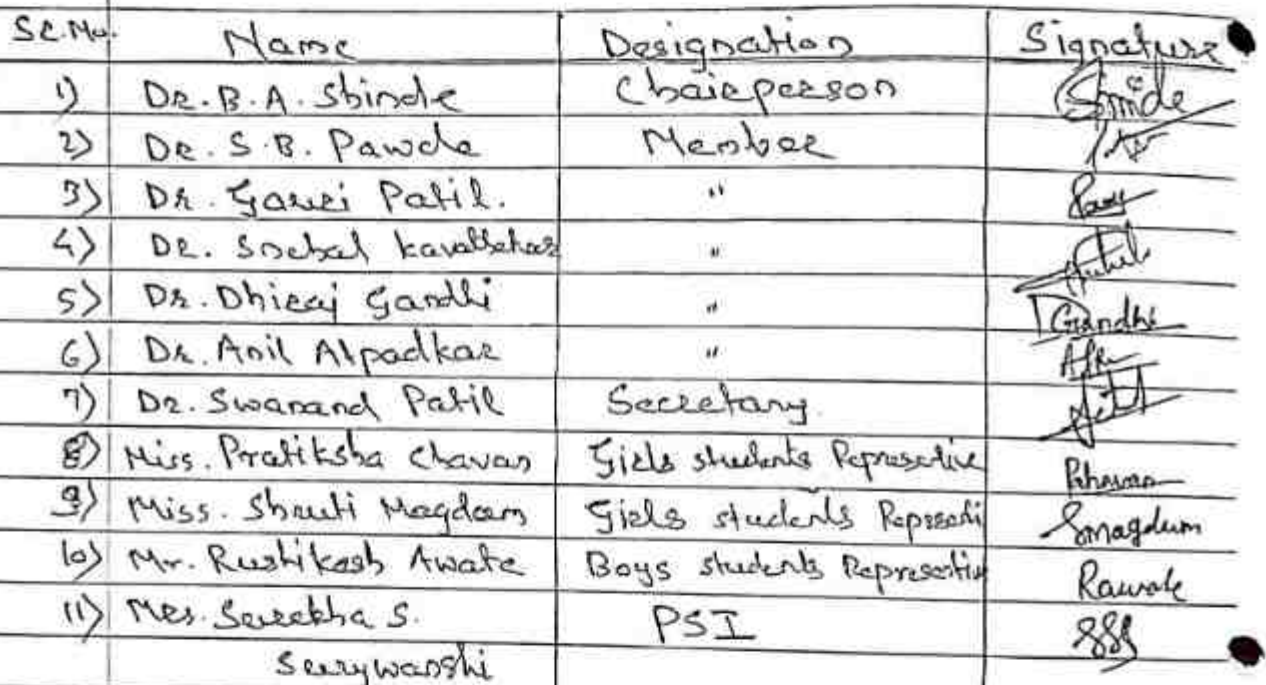 Sr.No. Name Designation Signature
1) Dr. B. A. Shinde Chairperson Shinde
2) Dr. S. B. Pawde Member
3) Dr. Gauri Patil. "
4) Dr. Snehal Kavathekar "
5) Dr. Dhiraj Gandhi " DGandhi
6) Dr. Anil Alpadkar "
7) Dr. Swanand Patil Secretary
8) Miss. Pratiksha Chavan Girls students Represetive PChavan
9) Miss. Shruti Magdum Girls students Represeti Smagdum
10) Mr. Rushikesh Awate Boys students Represettive Rawate
11) Mrs. Surekha S. PSI SSS
Surywanshi